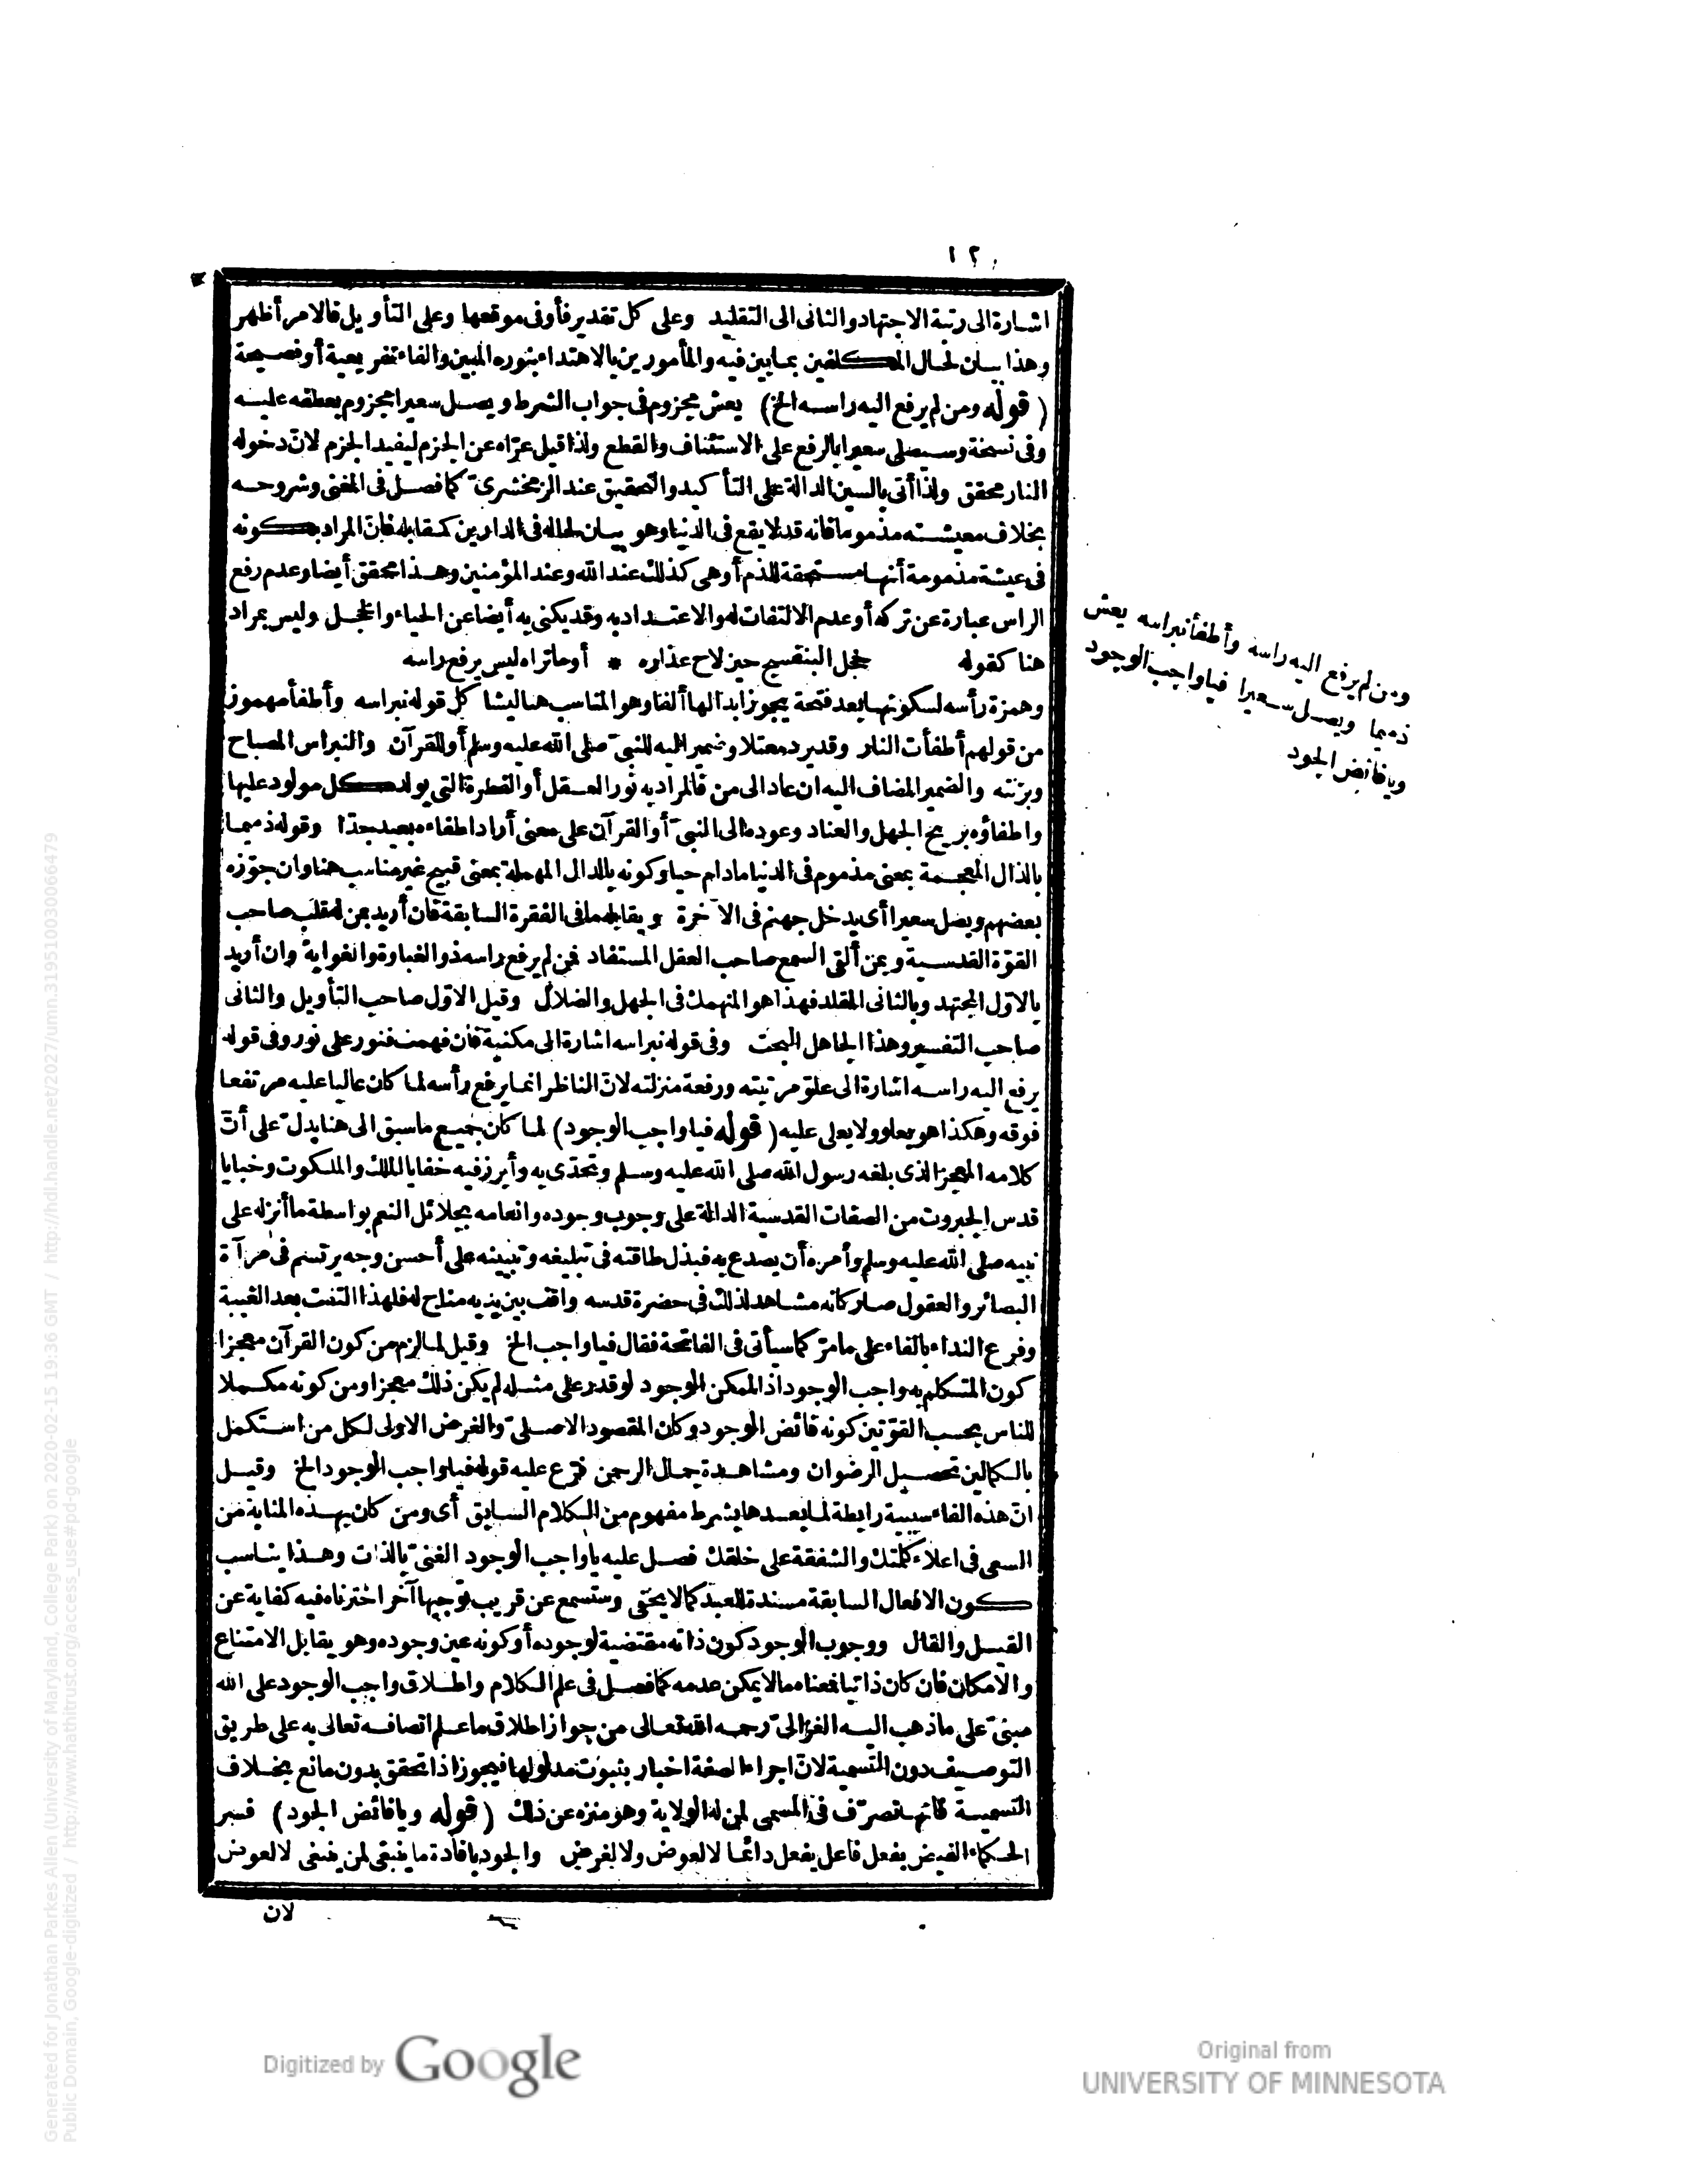 ١٢
اشارة الى رتبة الاجتهاد والثانى الى التقليد وعلى كل تقدير فأو فى موقعها وعلى التأويل فالامر أظهر
وهذا بيان لحال المكلفين بما يبين فيه والمأمورين بالاهتداء بنوره المبين والفاء تفريعية أو فصيحة
(قوله ومن لم يرفع اليه راسه الخ) يعش مجزوم فى جواب الشرط ويصل سعيرا مجزوم بعطفه عليه
وفى نسخة وسيصلى سعيرا بالرفع على الاستئناف والقطع ولذا قيل عرّاه عن الجزم ليفيد الجزم لانّ دخوله
النار محقق ولذا أتى بالسين الدالة على التأكيد والتحقيق عند الزمخشرىّ كما فصل فى المغنى وشروحه
بخلاف معيشته مذموما فانه قد لا يقع فى الدنيا وهو بيان لحاله فى الدارين كمقابله فانّ المراد بكونه
فى عيشة مذمومة أنها مستحقة للذم أو هى كذلك عند الله وعند المؤمنين وهذا محقق أيضا وعدم رفع
الراس عبارة عن تركه أو عدم الالتفات له والاعتداد به وقد يكنى به أيضا عن الحياء والخجل وليس بمراد
هنا كقوله خجل البنفسج حين لاح عذاره * أو ما تراه ليس يرفع راسه
وهمزة رأسه لسكونها بعد فتحة يجوز ابدالها ألفا وهو المناسب هنا ليشاكل قوله نبراسه وأطفأ مهموز
من قولهم أطفأت النار وقد يرد معتلا وضمير اليه للنبىّ صلى الله عليه وسلم أو للقرآن والنبراس المصباح
وبزنته والضمير المضاف اليه ان عاد الى من فالمراد به نور العقل أو الفطرة التى يولد كل مولود عليها
واطفاؤه بريح الجهل والعناد وعوده الى النبىّ أو القرآن على معنى أراد اطفاءه بعيد جدّا وقوله ذميما
بالذال المعجمة بمعنى مذموم فى الدنيا مادام حيا وكونه بالدال المهملة بمعنى قبيح غير مناسب هنا وان جوّزه
بعضهم ويصل سعيرا أى يدخل جهنم فى الآخرة ويقابلهما فى الفقرة السابقة فان أريد بمن له قلب صاحب
القوّة القدسية وبمن ألقى السمع صاحب العقل المستفاد فمن لم يرفع راسه ذو الغباوة والغواية وان أريد
بالاوّل المجتهد وبالثانى المقلد فهذا هو المنهمك فى الجهل والضلال وقيل الاوّل صاحب التأويل والثانى
صاحب التفسير وهذا الجاهل البحت وفى قوله نبراسه اشارة الى مكنية فان فهمت فنور على نور وفى قوله
يرفع اليه راسه اشارة الى علوّ مرتبته ورفعة منزلته لانّ الناظر انما يرفع رأسه لما كان عاليا عليه مرتفعا
فوقه وهكذا هو يعلو ولا يعلى عليه (قوله فيا واجب الوجود) لما كان جميع ما سبق الى هنا يدل على أنّ
كلامه المعجز الذى بلغه رسول الله صلى الله عليه وسلم وتحدّى به وأبرز فيه خفايا الملك والملكوت وخبايا
قدس الجبروت من الصفات القدسية الدالة على وجوب وجوده وانعامه بجلائل النعم بواسطة ما أنزله على
نبيه صلى الله عليه وسلم وأمره أن يصدع به فبذل طاقته فى تبليغه وتبيينه على أحسن وجه يرتسم فى مرآة
البصائر والعقول صار كانه مشاهد لذلك فى حضرة قدسه واقف بين يديه مناج له فلهذا التفت بعد الغيبة
وفرع النداء بالفاء على ما مرّ كما سيأتى فى الفاتحة فقال فيا واجب الخ وقيل لما لزم من كون القرآن معجزا
كون المتكلم به واجب الوجود اذ الممكن الوجود لو قدر على مثله لم يكن ذلك معجزا ومن كونه مكملا
للناس بحسب القوّتين كونه فائض الوجود وكان المقصود الاصلىّ والغرض الاولى لكل من استكمل
بالكمالين تحصيل الرضوان ومشاهدة جمال الرحمن فرّع عليه قوله فيا واجب الوجود الخ وقيل
انّ هذه الفاء سببية رابطة لما بعدها بشرط مفهوم من الكلام السابق أى ومن كان بهذه المثابة من
السعى فى اعلاء كلمتك والشفقة على خلقك فصل عليه يا واجب الوجود الغنىّ بالذات وهذا يناسب
كون الافعال السابقة مسندة للعبد كما لا يخفى وستسمع عن قريب توجيها آخر اخترناه فيه كفاية عن
القيل والقال ووجوب الوجود كون ذاته مقتضية لوجوده أو كونه عين وجوده وهو يقابل الامتناع
والامكان فان كان ذاتيا فمعناه ما لا يمكن عدمه كما فصل فى علم الكلام واطلاق واجب الوجود على الله
مبنىّ على ما ذهب اليه الغزالىّ رحمه الله تعالى من جواز اطلاق ما علم اتصافه تعالى به على طريق
التوصيف دون التسمية لانّ اجراء الصفة اخبار بثبوت مدلولها فيجوز اذا تحقق بدون مانع بخلاف
التسمية فانها تصرّف فى المسمى لمن له الولاية وهو منزه عن ذلك (قوله ويا فائض الجود) فسر
الحكماء الفيض بفعل فاعل يفعل دائما لا لعوض ولا لغرض والجود بافادة ما ينبغى لمن ينبغى لا لعوض
لان
ومن لم يرفع اليه راسه وأطفأ نبراسه يعش
ذميما ويصل سعيرا فيا واجب الوجود
ويا فائض الجود
Digitized by Google
Original from
UNIVERSITY OF MINNESOTA
Generated for Jonathan Parkes Allen (University of Maryland, College Park) on 2020-02-15 19:36 GMT / http://hdl.handle.net/2027/umn.31951003066479
Public Domain, Google-digitized / http://www.hathitrust.org/access_use#pd-google